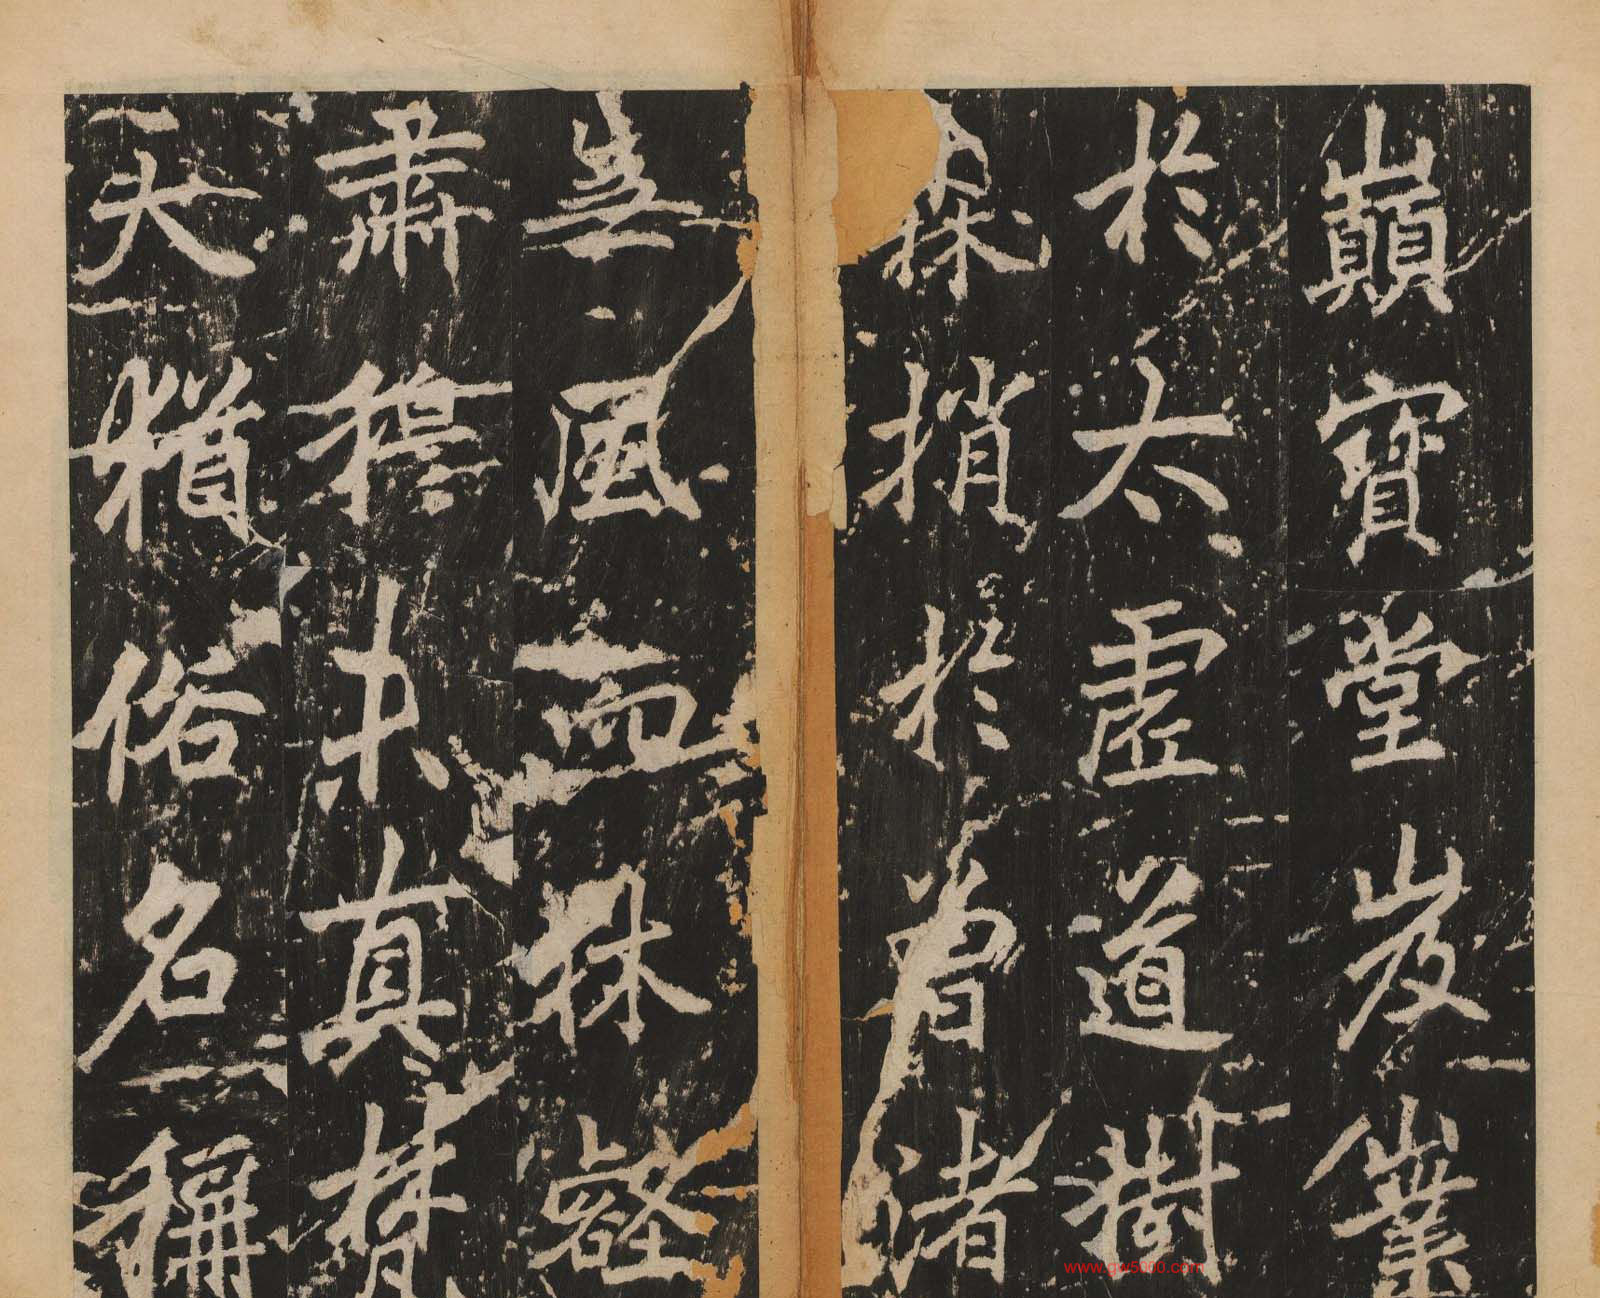 巔寶堂岌嶪
於太虛道樹
森梢於曾渚
無風而林壑
肅穆未真梵
天猶俗名稱
www.gw5000.com